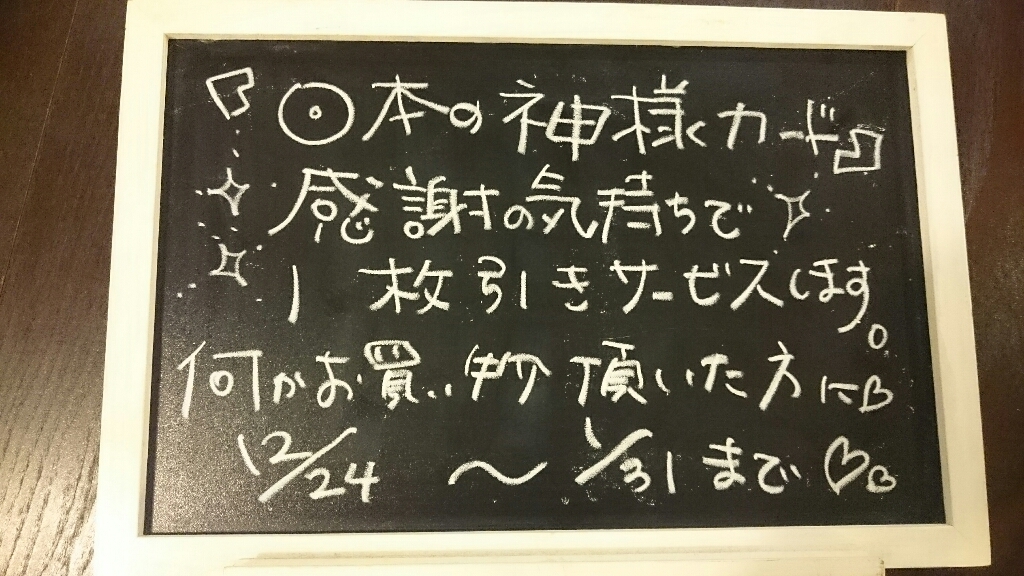 『日本の神様カード』
感謝の気持ちで
1枚引きサービスします。
何かお買い物頂いた方に
12/24 〜 1/31まで♡